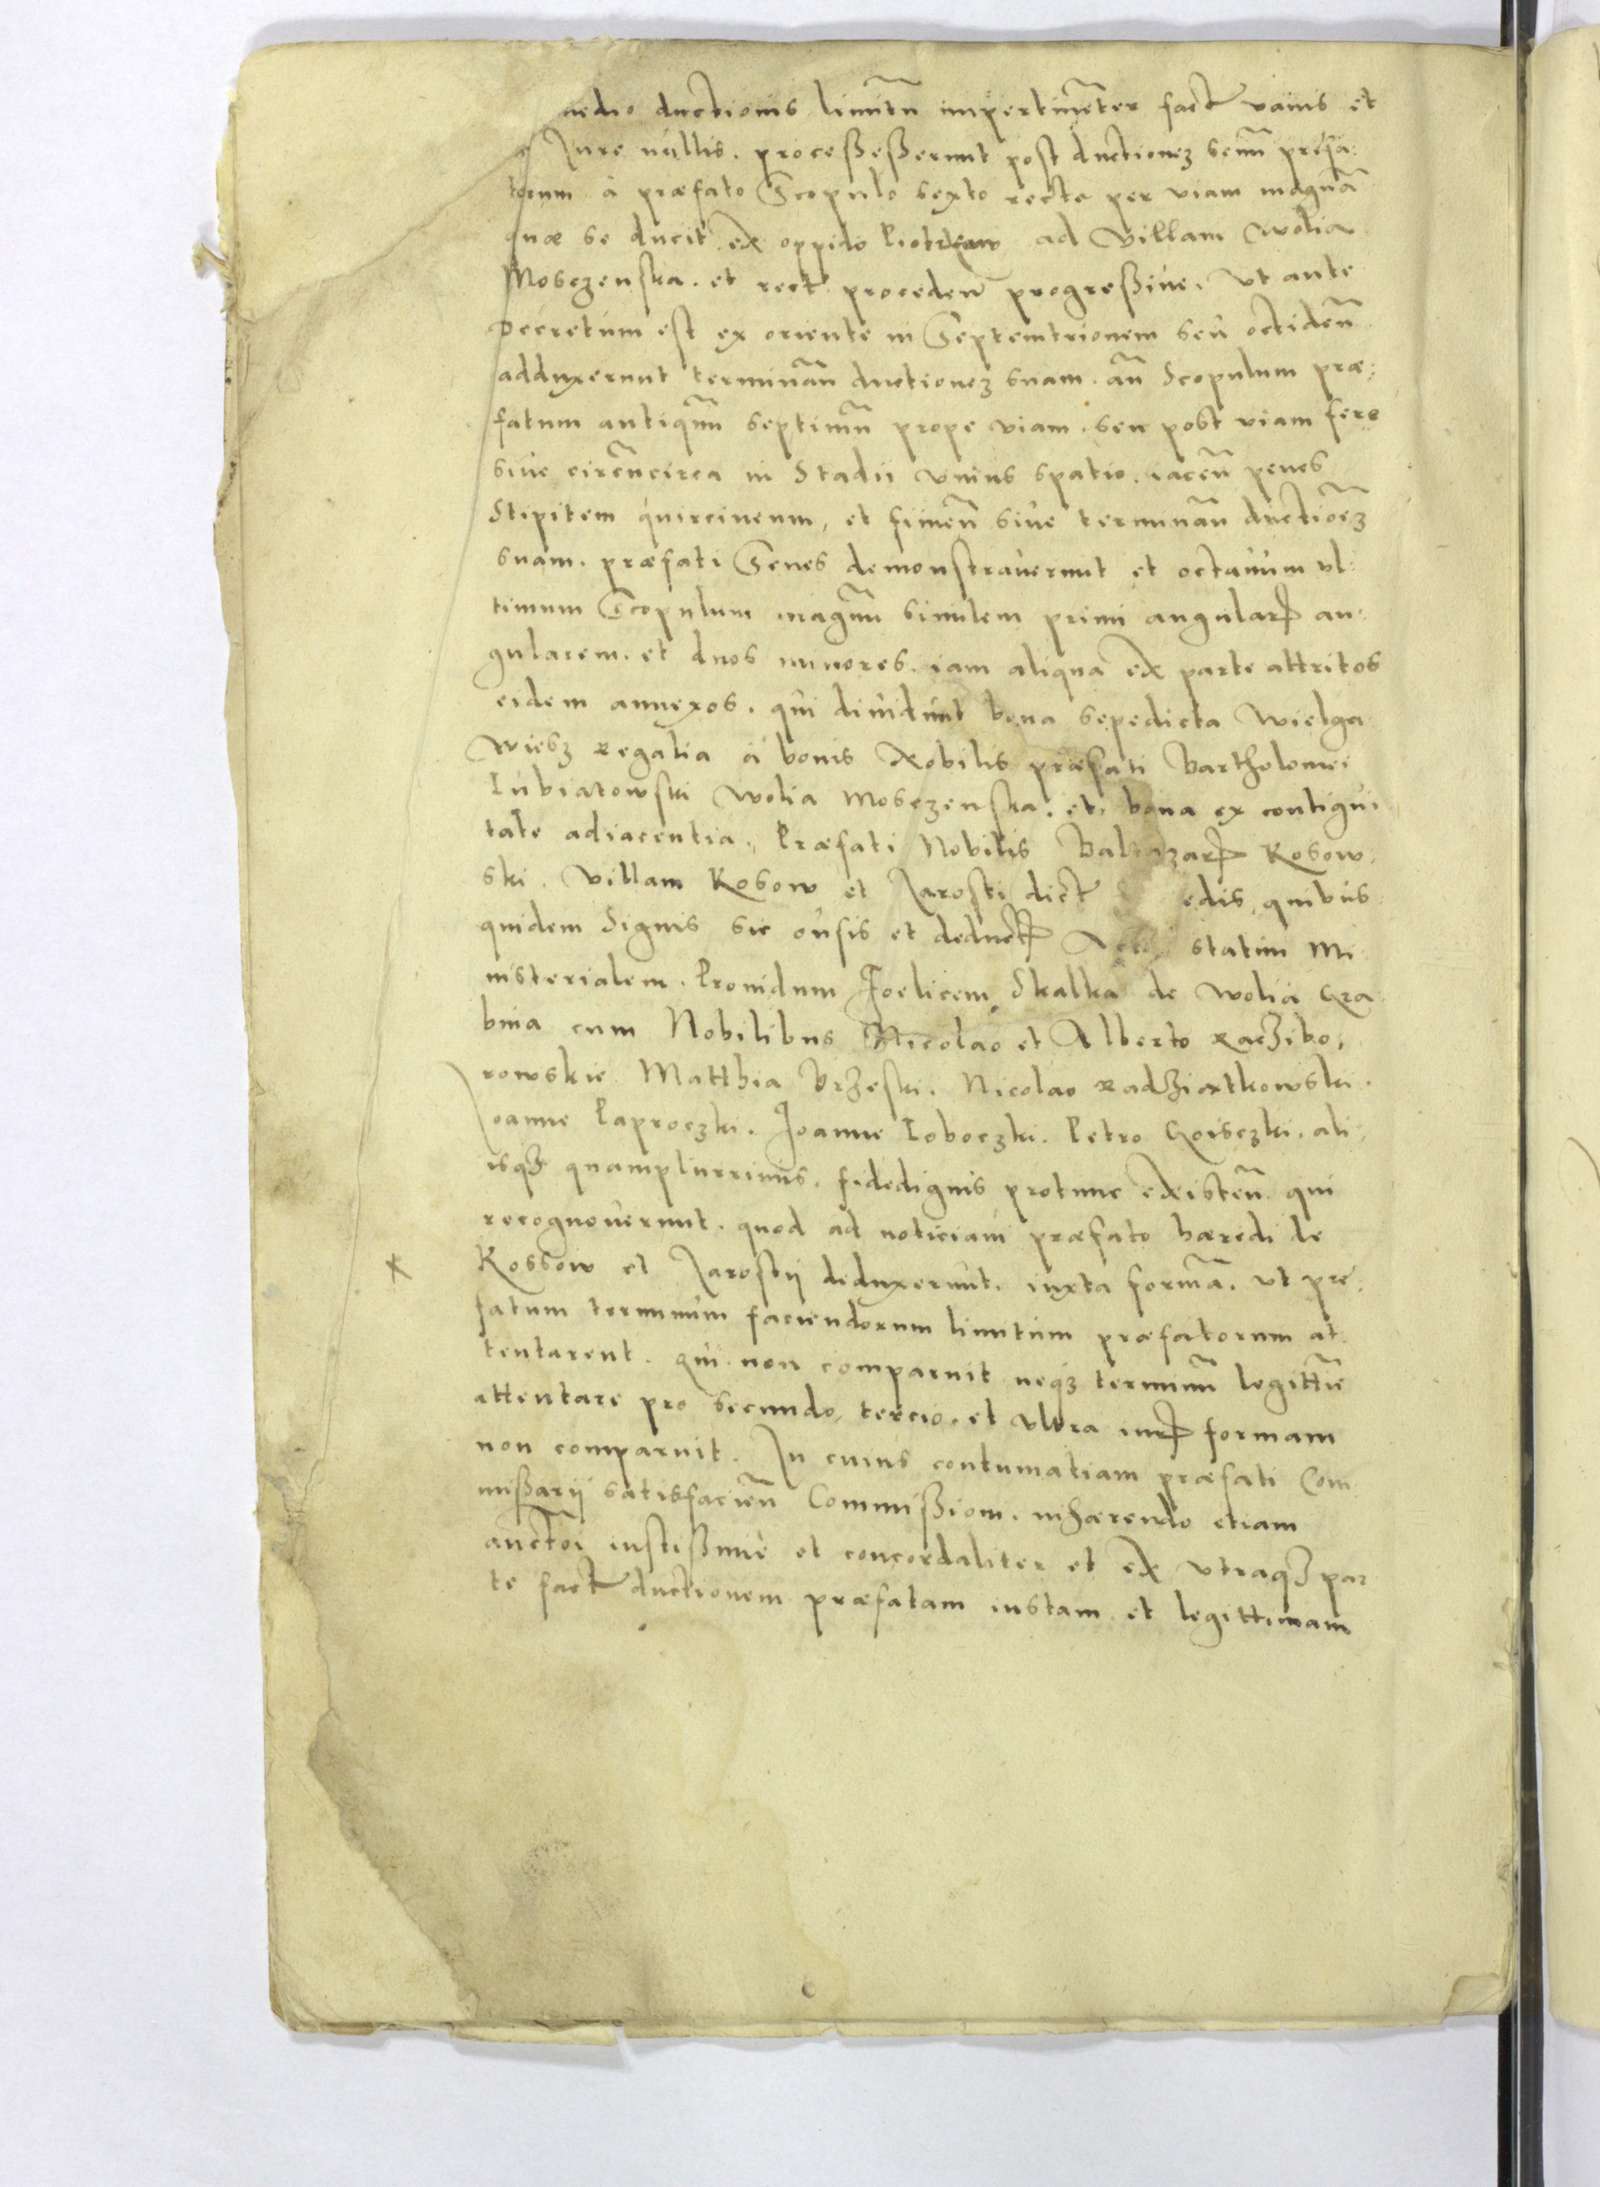 medio ductionis limitũ impertinẽter fact vanis et
Jure nullis. proceßeßerunt post ductionez senũ præfa:
torum à præfato Scopulo sexto recte per viam magnã
quæ se ducit ex oppido Piotrkow ad Villam Wolia
Mosczenska. et rect proceden progreßiue. Vt ante
Decretum est ex oriente in Septemtrionem seu occidẽn
adduxerunt terminãn ductionez suam. añ Scopulum præ:
fatum antiquũ septimũ prope viam. seu post viam fere
siue circũcirca in Stadii vnius spatio. iacẽn penes
Stipitem quircineum, et finiẽn siue terminãn ductiõez
suam. præfati Senes demonstrauerunt et octauum vl:
timum Scopulum magnũ similem primi angular an:
gularem. et duos minores. iam aliqua ex parte attritos
eidem annexos. qui diuidunt bona sepedicta Wielga
Wiesz regalia à bonis Nobilis præfati Bartholomei
Lubiatowski Wolia Mosczenska. et bona ex contigui
tate adiacentia. Præfati Nobilis Baltazar Kosow:
ski. Villam Kosow et Jarosti dict edis, quibus
quidem Signis sic ousis et deduct statim Mi
nisterialem. Prouidum Foelicem Skalka de Wolia Gra
bina cum Nobilibus Nicolao et Alberto Raczibo:
rowskie Matthia Brzeski. Nicolao Radziątkowski.
Joanne Paproczki. Joanne Loboczki. Petro Goisczki. ali:
isqz quamplurrimis. fidedignis protunc existẽn qui
recognouerunt. quod ad noticiam præfato hæredi de
Kossow et Jarostii deduxerunt. iuxta formã. vt præ:
fatum terminum faciendorum limitum præfatorum at
tentarent. qui non comparuit neqz terminũ legittiẽ
attentare pro secundo, tercio. et vltra iur formam
non comparuit. In cuius contumatiam præfati Com
mißarii satisfaciẽn Commißioni. inhærendo etiam
auctoi iustißime et concordaliter et ex vtraqz par
te fact ductionem præfatam iustam et legittimam